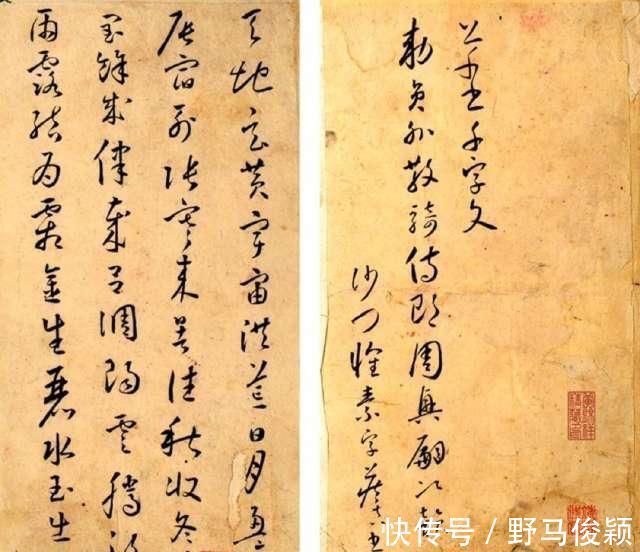 草書千字文
勅員外散騎侍郎周興嗣次韻
沙門懷素字藏真
天地玄黃宇宙洪荒日月盈
辰宿列張寒來暑往秋收冬
閏餘成律歲呂調陽雲騰致
雨露結為霜金生麗水玉生
快传号/野马俊颖